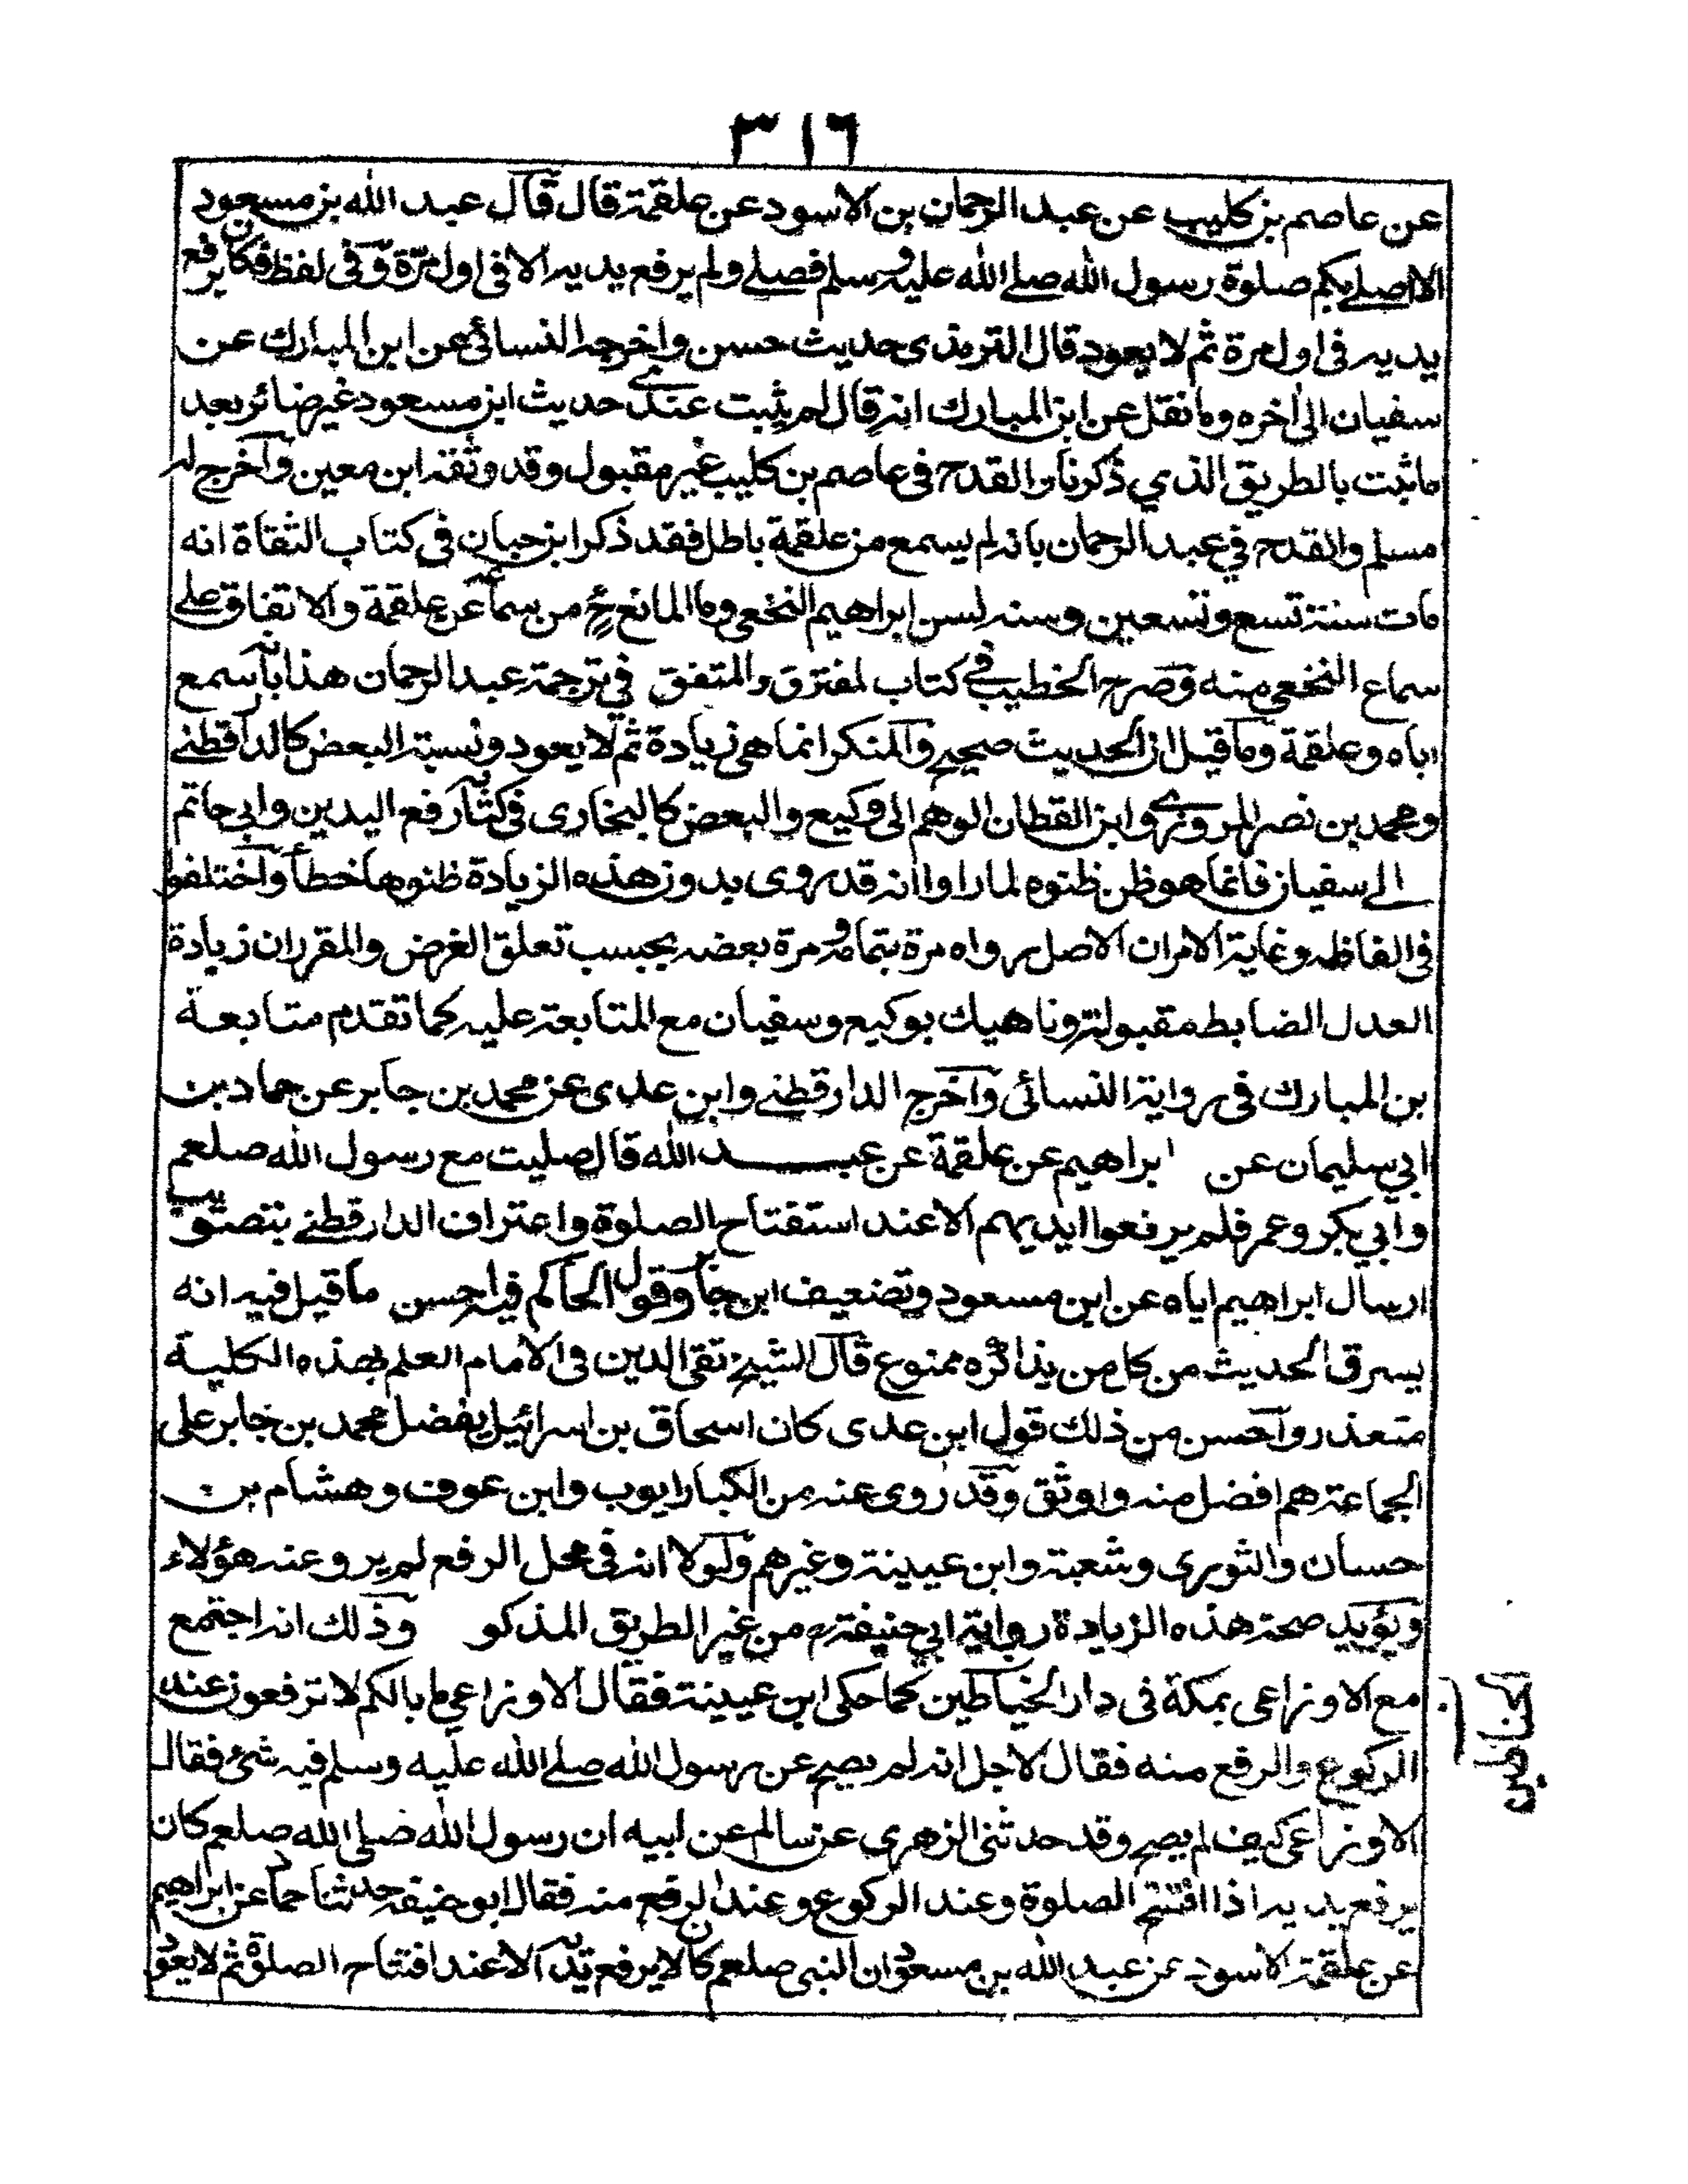 ٣١٦
عن عاصم بن كليب عن عبد الرحمان بن الاسود عن علقمة قال قال عبد الله بن مسعود
الا اصلي بكم صلوة رسول الله صلى الله عليه وسلم فصلى ولم يرفع يديه الا في اول مرة وفى لفظ فكان يرفع
يديه فى اول مرة ثم لا يعود قال الترمذى حديث حسن واخرجه النسائى عن ابن المبارك عن
سفيان الى اخره وما نقل عن ابن المبارك انه قال لم يثبت عندى حديث ابن مسعود غير ضائر بعد
ما ثبت بالطريق الذي ذكرنا والقدح فى عاصم بن كليب غير مقبول وقد وثقه ابن معين واخرج له
مسلم والقدح في عبد الرحمان بانه لم يسمع من علقمة باطل فقد ذكر ابن حبان فى كتاب الثقاة انه
مات سنة تسع وتسعين وسنه لسن ابراهيم النخعي وما المانع ح من سماعه عن علقمة والاتفاق على
سماع النخعي منه وصرح الخطيب في كتاب لمفترق والمتفق في ترجمة عبد الرحمان هذا بانه سمع
اباه وعلقمة وما قيل ان الحديث صحيح والمنكر انما هى زيادة ثم لا يعود ونسبة البعض كالدارقطني
ومحمد بن نصر المروزى وابن القطان الوهم الى وكيع والبعض كالبخارى فى كتابه رفع اليدين وابي حاتم
الى سفيان فانما هو ظن ظنوه لما راوا انه قد روى بدون هذه الزيادة ظنوها خطأ واختلفوا
فى الفاظه وغاية الامر ان الاصل رواه مرة بتمامه ومرة بعضه بحسب تعلق الغرض والمقرر ان زيادة
العدل الضابط مقبولة وناهيك بوكيع وسفيان مع المتابعة عليه كما تقدم متابعة
بن المبارك فى رواية النسائى واخرج الدارقطني وابن عدى عن محمد بن جابر عن حماد بن
ابي سليمان عن ابراهيم عن علقمة عن عبد الله قال صليت مع رسول الله صلعم
وابي بكر وعمر فلم يرفعوا ايديهم الا عند استفتاح الصلوة واعتراف الدارقطني بتصويب
ارسال ابراهيم اياه عن ابن مسعود وتضعيف ابن جابر وقول الحاكم فيه احسن ما قيل فيه انه
يسرق الحديث من كل من يذاكره ممنوع قال الشيخ تقى الدين فى الامام العلم بهذه الكلية
متعذر واحسن من ذلك قول ابن عدى كان اسحاق بن اسرائيل يفضل محمد بن جابر على
الجماعة هم افضل منه واوثق وقد روى عنه من الكبار ايوب وابن عوف وهشام بن
حسان والثورى وشعبة وابن عيينة وغيرهم ولولا انه فى محل الرفع لم يرو عنه هؤلاء
ويؤيد صحة هذه الزيادة رواية ابي حنيفة من غير الطريق المذكو وذلك انه اجتمع
مع الاوزاعى بمكة فى دار الخياطين كما حكى ابن عيينة فقال الاوزاعي ما بالكم لا ترفعون عند
الركوع والرفع منه فقال لاجل انه لم يصح عن رسول الله صلى الله عليه وسلم فيه شئ فقال
الاوزاعى كيف لم يصح وقد حدثنى الزهرى عن سالم عن ابيه ان رسول الله صلى الله صلعم كان
يرفع يديه اذا افتتح الصلوة وعند الركوع وعند الرفع منه فقال ابو حنيفة حدثنا حماد عن ابراهيم
عن علقمة الاسود عن عبد الله بن مسعود ان النبى صلعم كان لا يرفع يديه الا عند افتتاح الصلوة ثم لا يعود